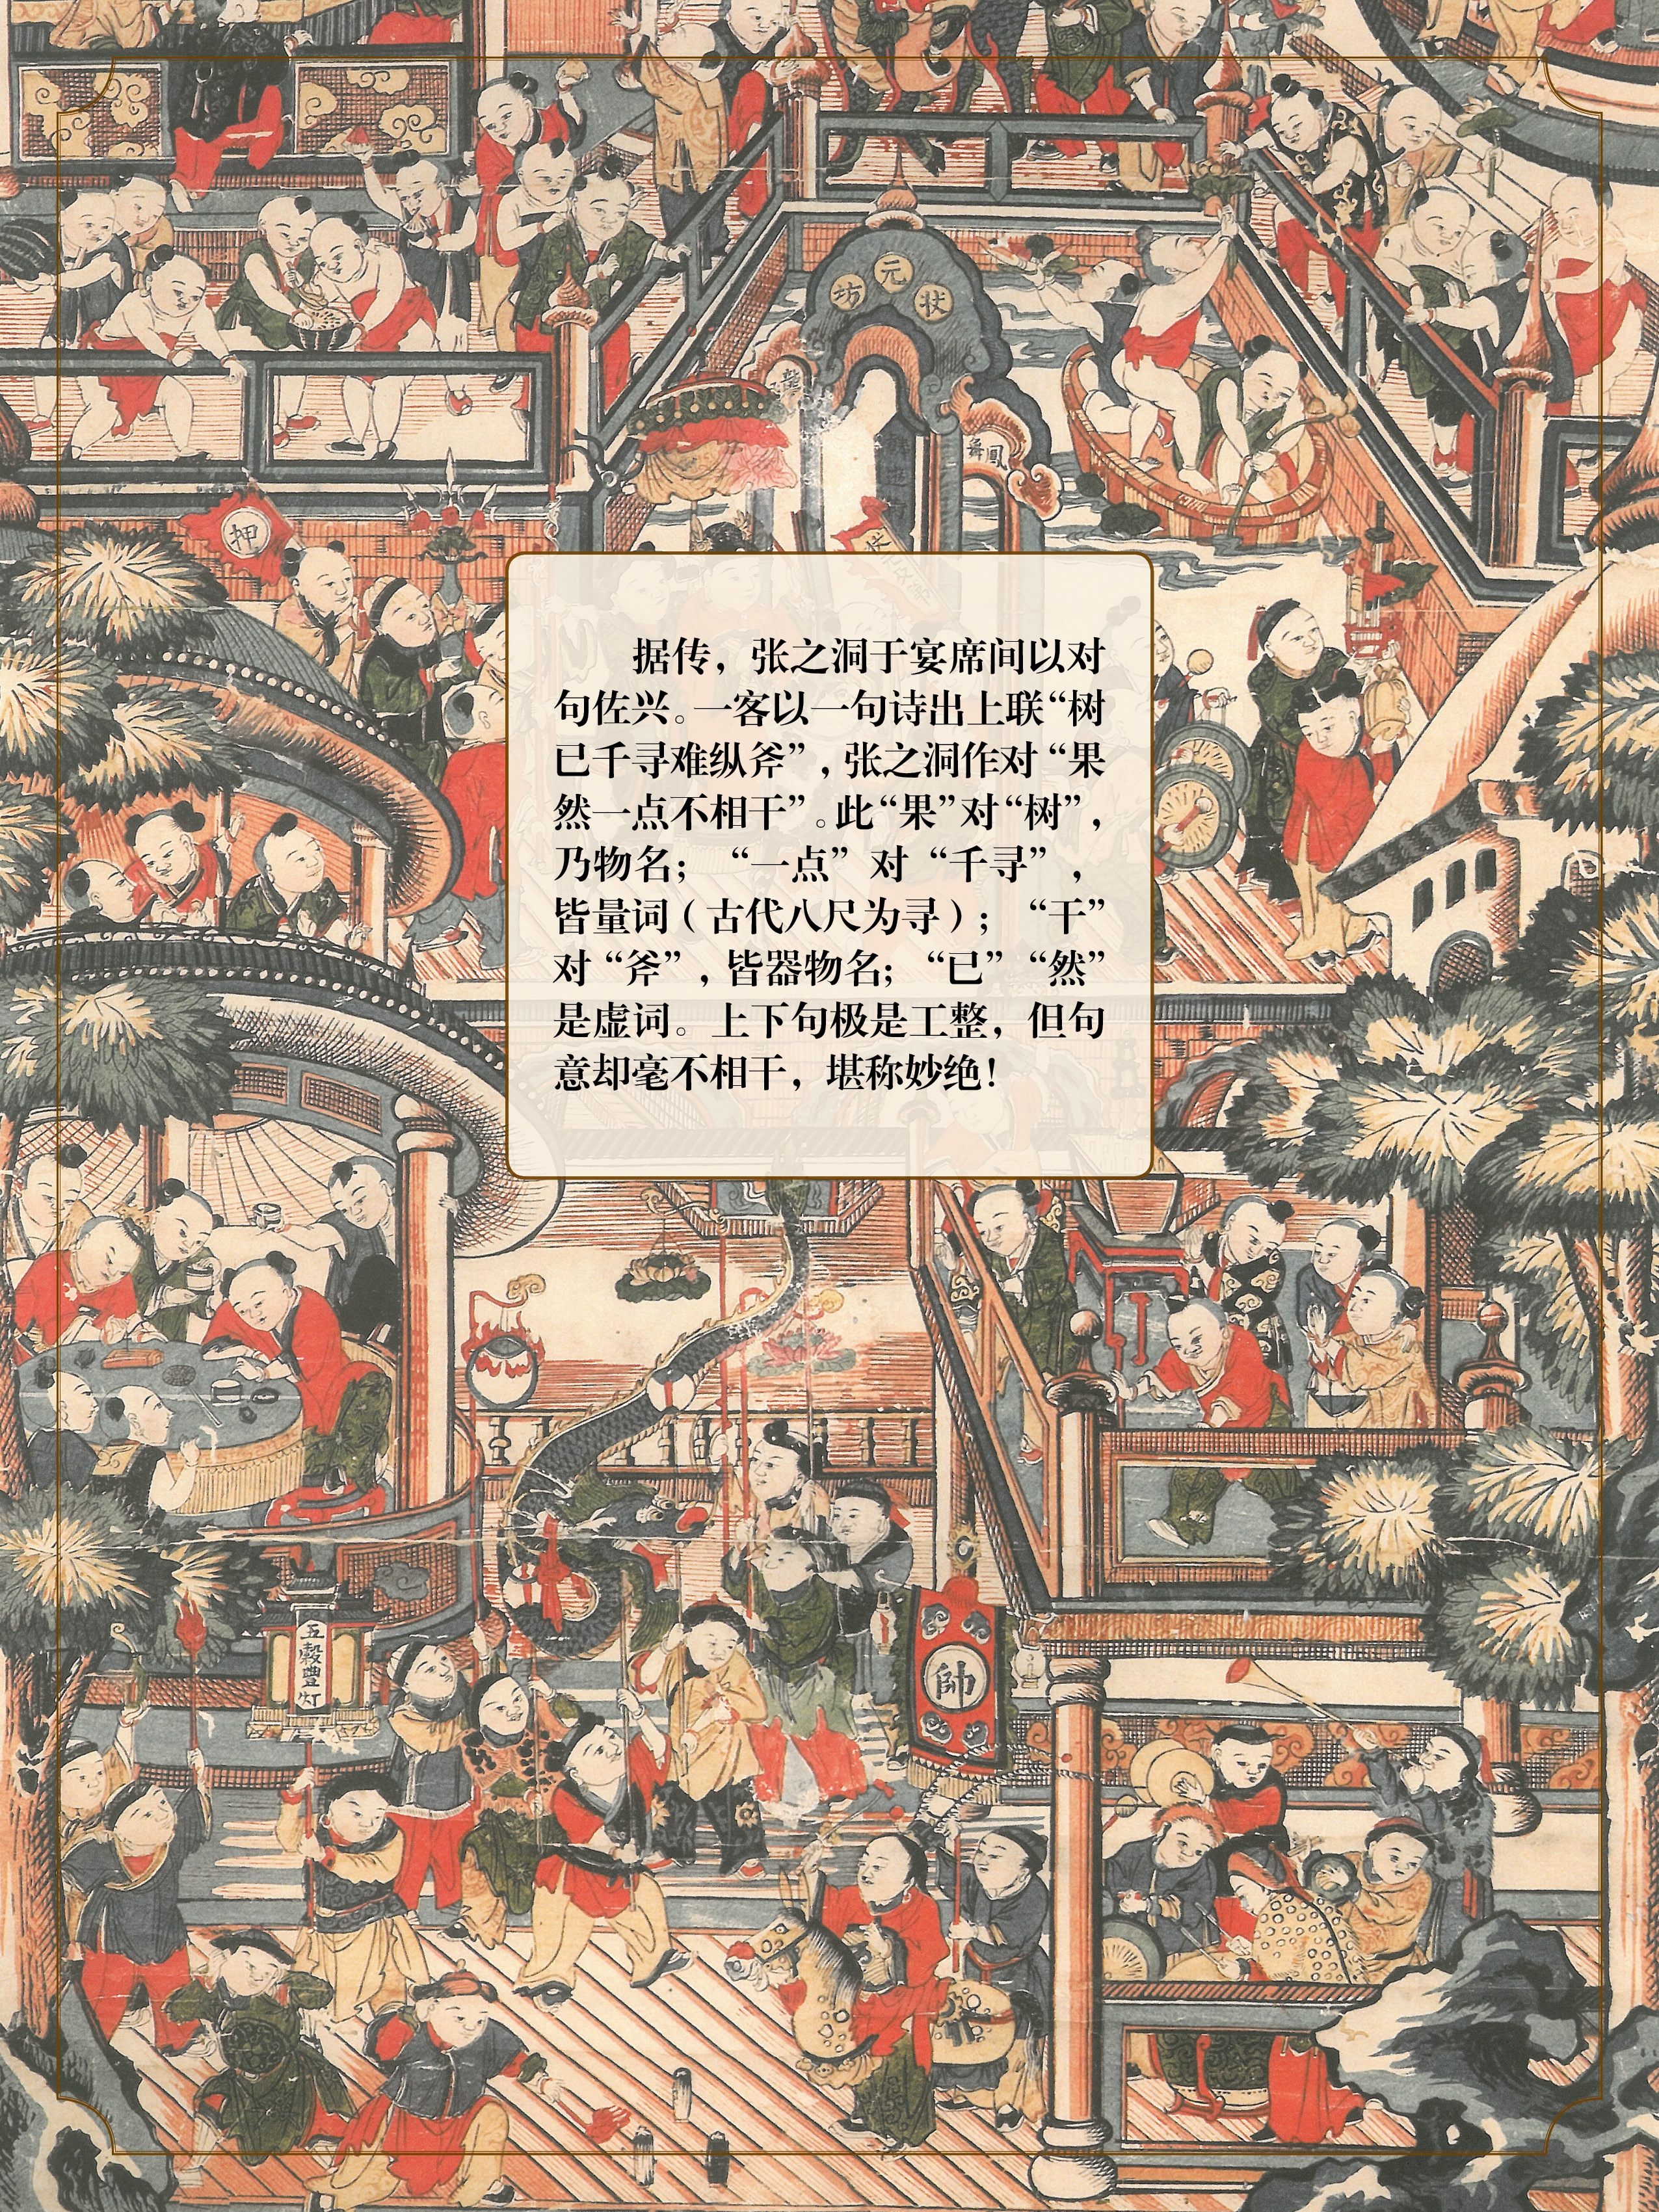 坊元状
鳳舞
押
据传，张之洞于宴席间以对
句佐兴。一客以一句诗出上联“树
已千寻难纵斧”，张之洞作对“果
然一点不相干”。此“果”对“树”，
乃物名；“一点”对“千寻”，
皆量词（古代八尺为寻）；“干”
对“斧”，皆器物名；“已”“然”
是虚词。上下句极是工整，但句
意却毫不相干，堪称妙绝！
五穀豊灯
帥